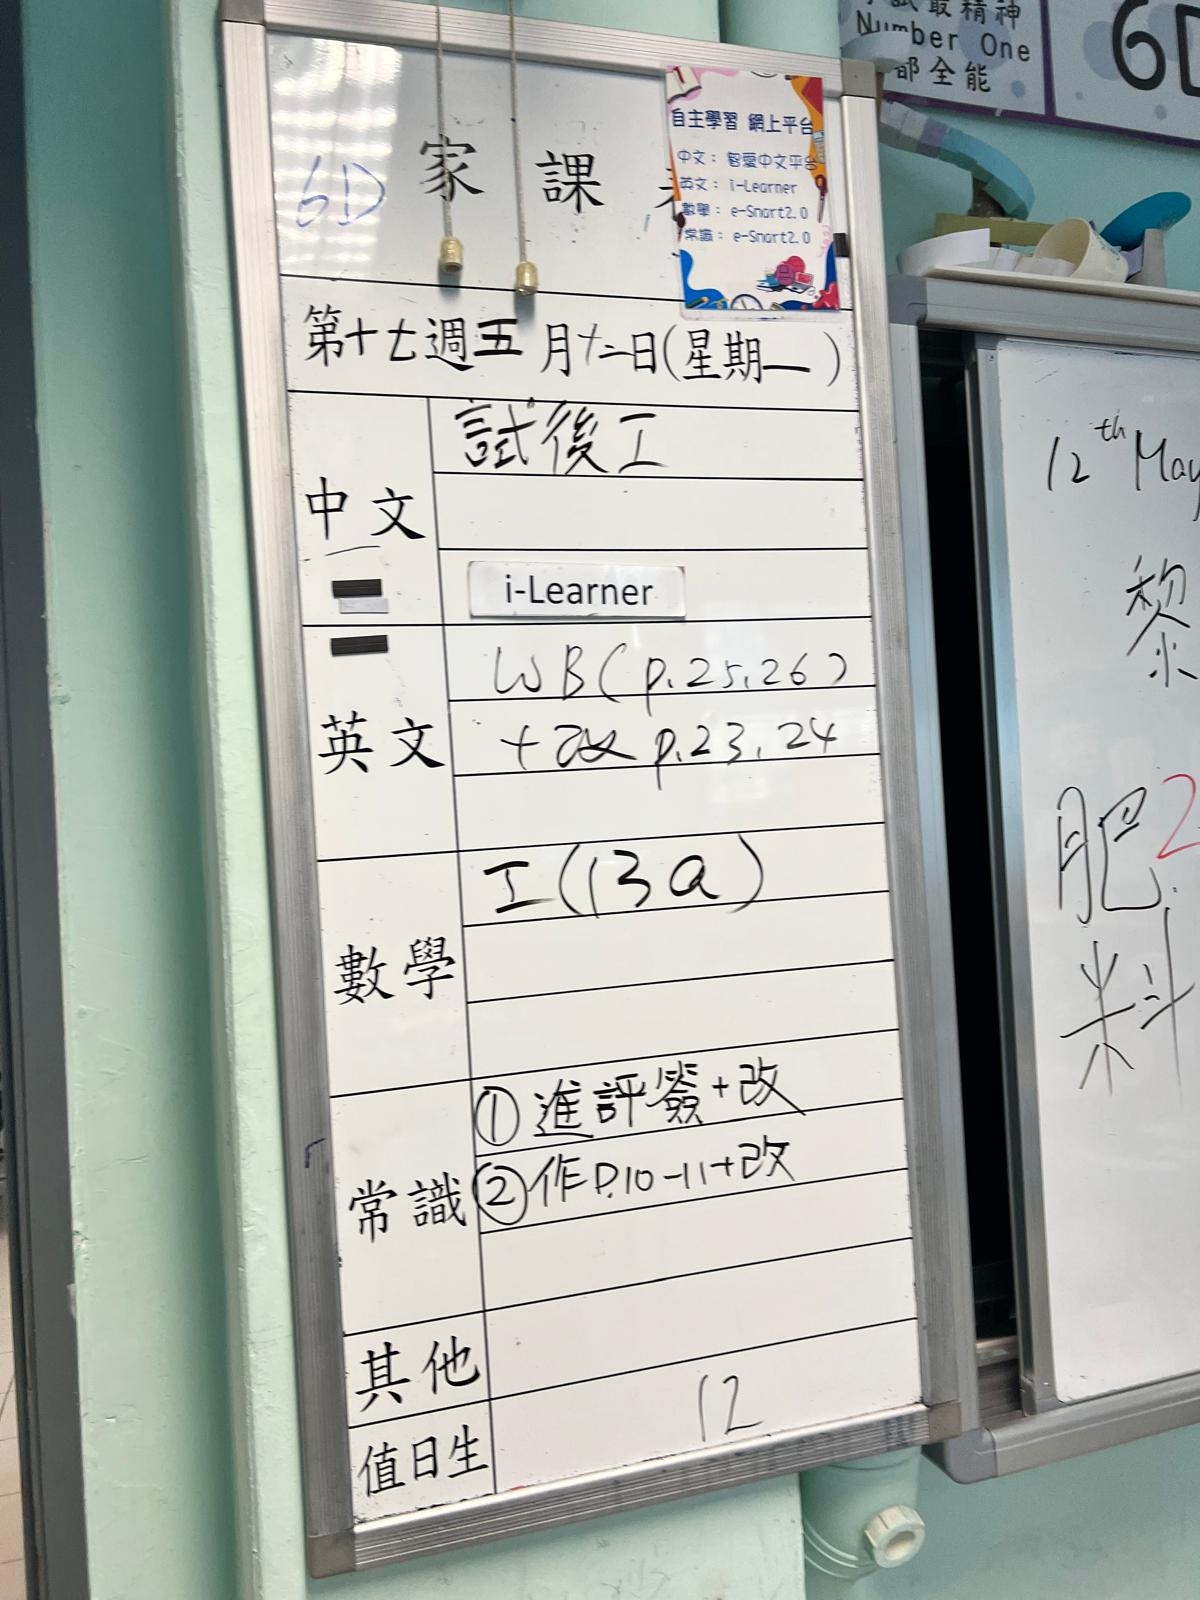 試最精神
Number One
都全能
6D
6D 家課
自主學習 網上平台
中文：智愛中文平台
英文：i-Learner
數學：e-Smart2.0
常識：e-Smart2.0
第十七週五月十二日(星期一)
中文
試後工
i-Learner
英文
WB(p.25,26)
+改 p.23,24
數學
工(13a)
常識
①進評簽+改
②作P.10-11+改
其他
值日生
12
12th May
黎
肥 2
料